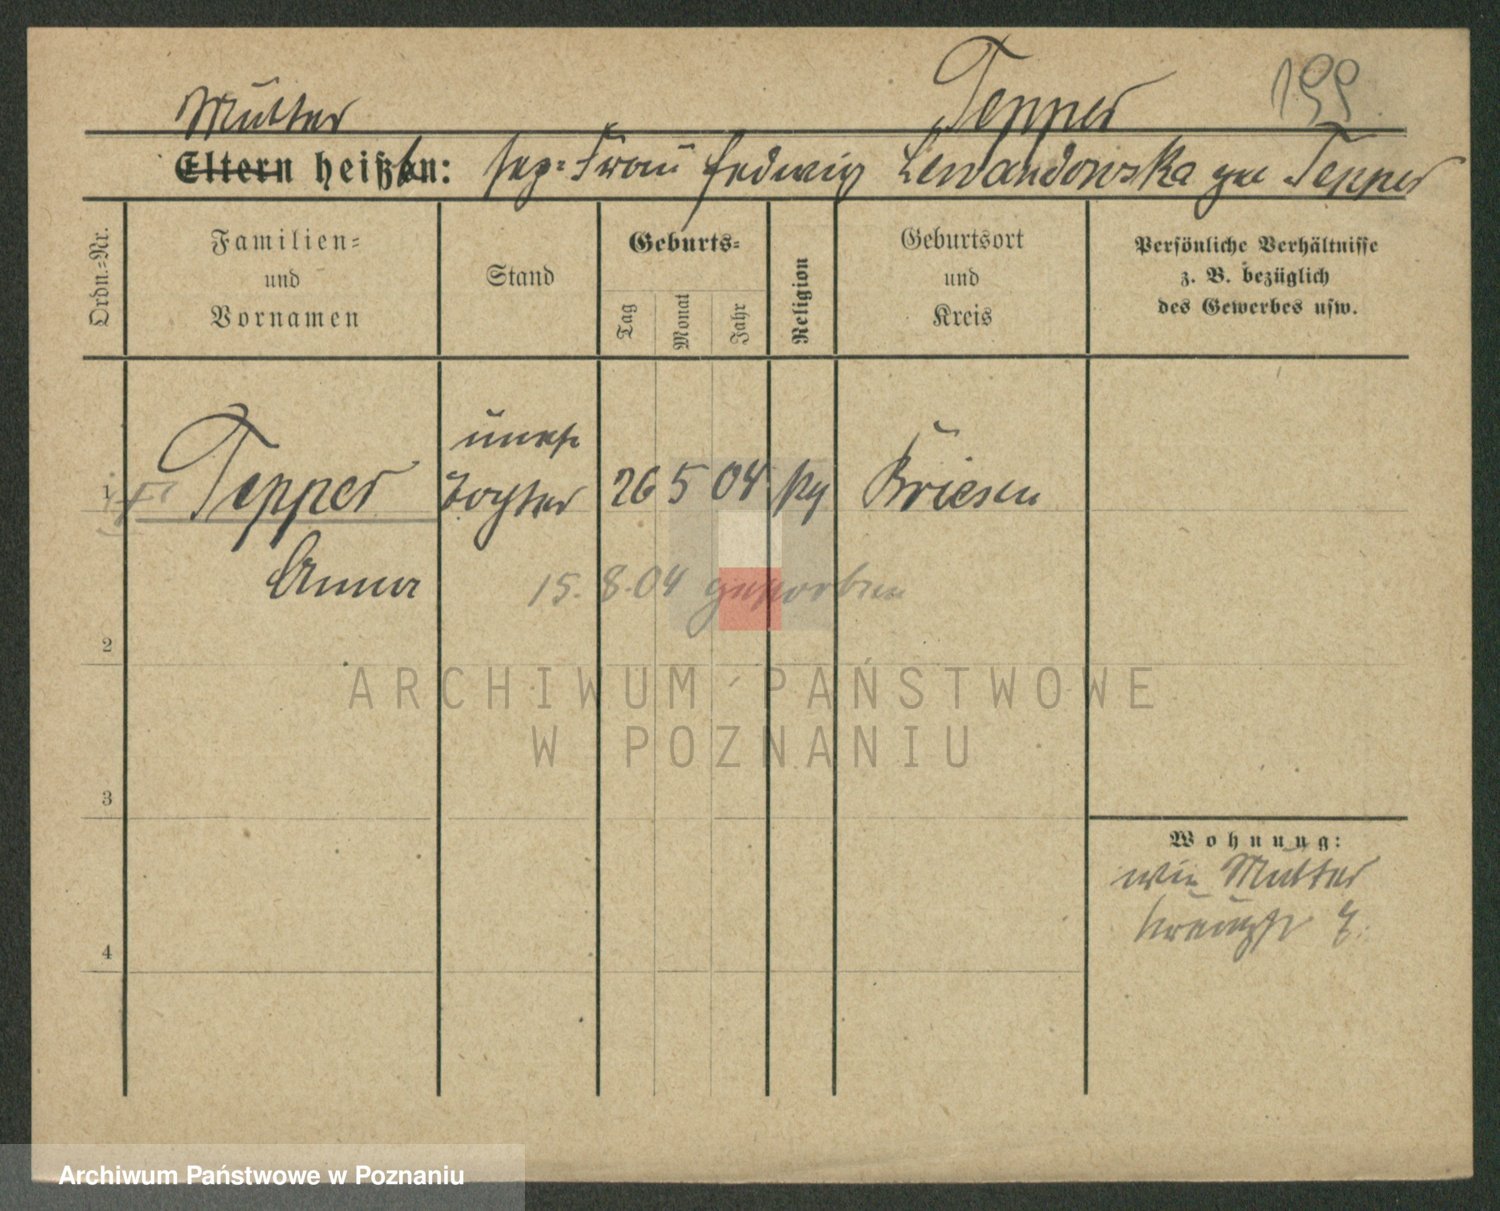 199
Tepper
Mutter
Eltern heißen: sep. Frau Hedwig Lewandowska geb Tepper
Ordn.=Nr.
Familien=
und
Vornamen
Stand
Geburts=
Tag
Monat
Jahr
Religion
Geburtsort
und
Kreis
Persönliche Verhältnisse
z. B. bezüglich
des Gewerbes usw.
uneh
1 Tepper Tochter 26 5 04 Briesen
Anna
15.8.04 gestorben
2
3
4
Wohnung:
wie Mutter
ARCHIWUM PAŃSTWOWE
W POZNANIU
Archiwum Państwowe w Poznaniu